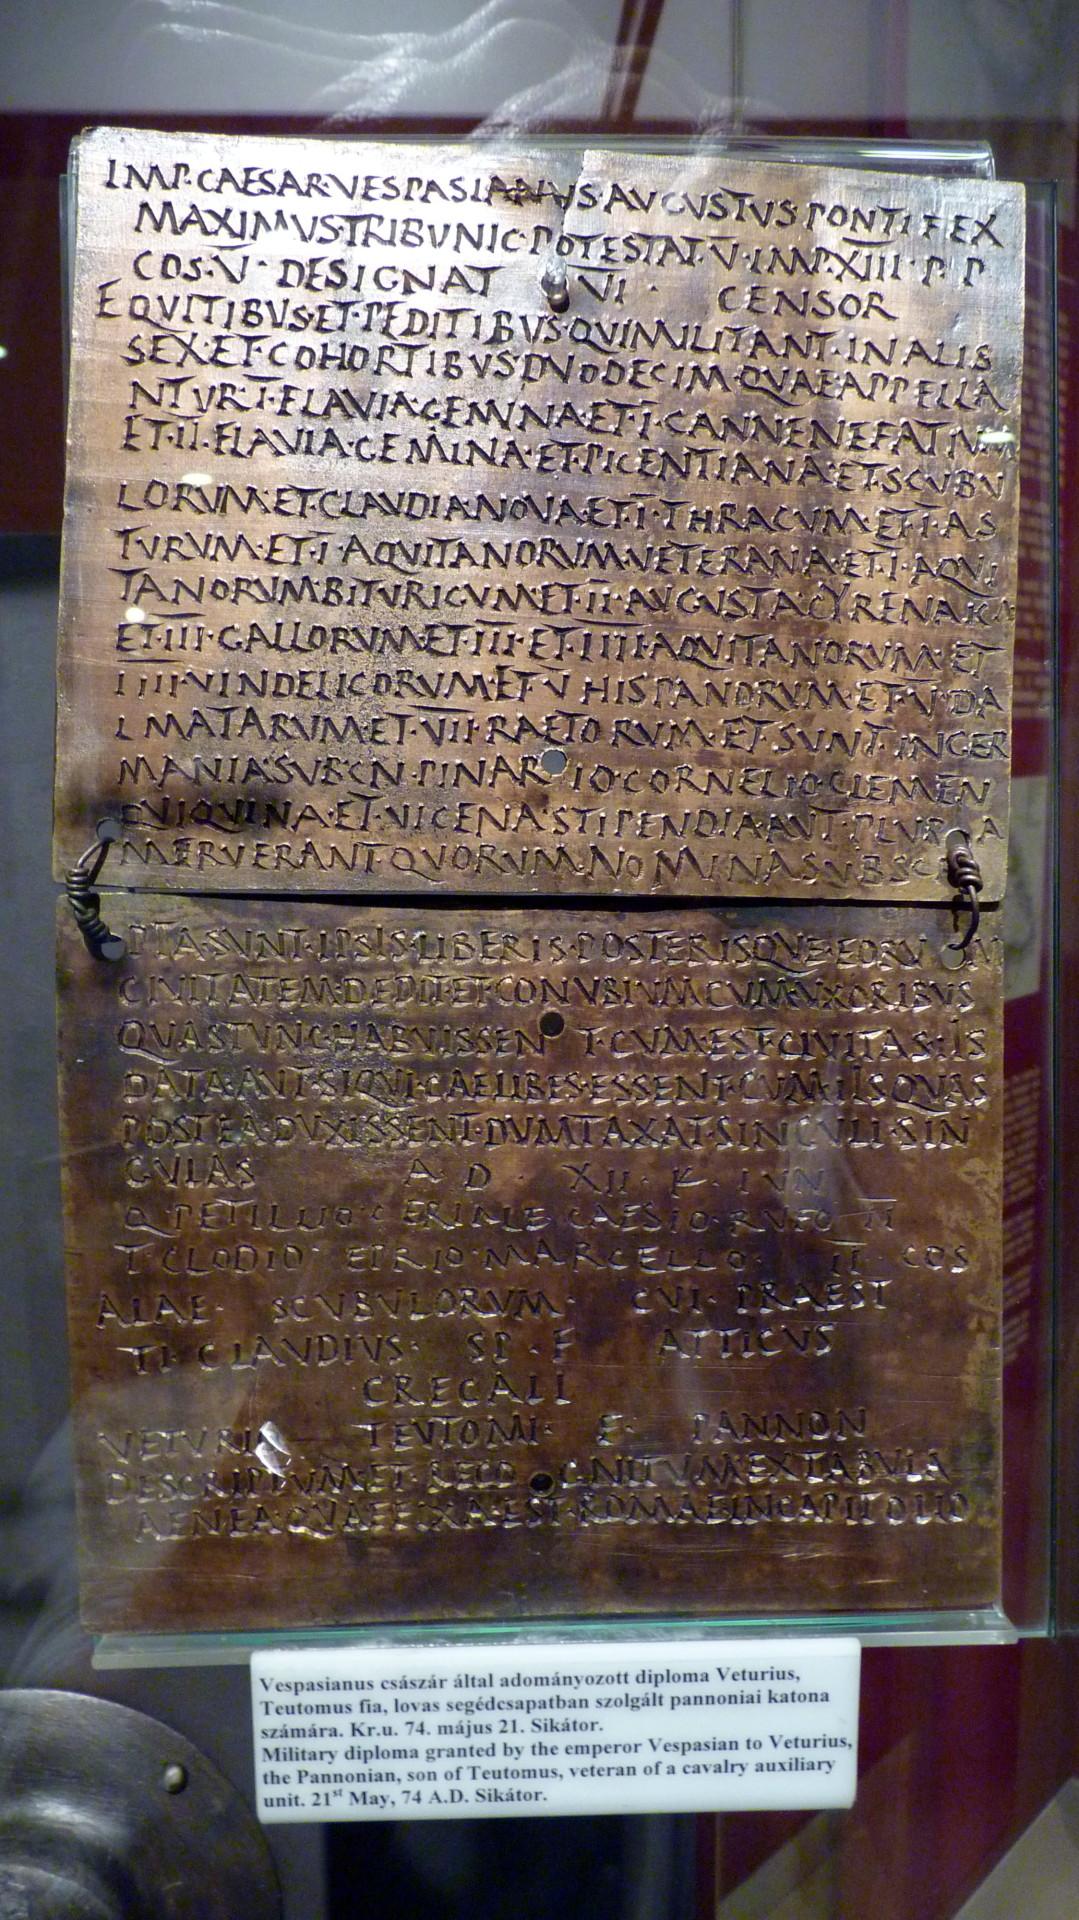 IMP·CAESAR·VESPASIANVS·AVGVSTVS·PONTIFEX
MAXIMVS·TRIBVNIC·POTESTAT·V·IMP·XIII·P·P
COS·V· DESIGNAT VI · CENSOR
EQVITIBVS·ET·PEDITIBVS·QVI·MILITANT·IN ALIS
SEX·ET·COHORTIBVS·DVODECIM·QVAE·APPELLA
NTVR·I·FLAVIA·GEMINA·ET·I·CANNENEFATIVM
ET·II·FLAVIA·GEMINA·ET·PICENTIANA·ET·SCVBV
LORVM·ET·CLAVDIA·NOVA·ET·I·THRACVM·ET·I·AS
TVRVM·ET·I·AQVITANORVM·VETERANA·ET·I·AQVI
TANORVM·BITVRIGVM·ET·II·AVGVSTA·CYRENAICA
ET·III·GALLORVM·ET·III·ET·IIII·AQVITANORVM·ET
IIII·VINDELICORVM·ET·V HISPANORVM·ET·V·DA
LMATARVM·ET·VII·RAETORVM·ET·SVNT·IN GER
MANIA·SVB·CN·PINARIO·CORNELIO·CLEMEN
QVI QVINA·ET·VICENA·STIPENDIA·AVT·PLVRA
MERVERANT·QVORVM·NOMINA SVBSC
PTA·SVNT·IPSIS·LIBERIS·POSTERISQVE·EORVM
CIVITATEM·DEDIT·ET·CONVBIVM·CVM·VXORIBVS
QVAS·TVNC·HABVISSENT·CVM·EST·CIVITAS·IIS
DATA·AVT·SIQVI·CAELIBES·ESSENT·CVM·IIS QVAS
POSTEA·DVXISSENT·DVMTAXAT·SINGVLI·SIN
GVLAS A · D · XII · K · IVN
Q·PETILLIO·CERIALE CAESIO·RVFO II
T·CLODIO· EPRIO·MARCELLO· II· COS
ALAE· SCVBVLORVM· CVI·PRAEST
TI·CLAVDIVS· SP·F ATTICVS
GREGALI
VETVRIO TEVTOMI· F· PANNON
DESCRIPTVM·ET·RECOGNITVM·EX TABVLA
AENEA·QVAE·FIXA·EST·ROMAE·IN CAPITOLIO
Vespasianus császár által adományozott diploma Veturius,
Teutomus fia, lovas segédcsapatban szolgált pannoniai katona
számára. Kr.u. 74. május 21. Sikátor.
Military diploma granted by the emperor Vespasian to Veturius,
the Pannonian, son of Teutomus, veteran of a cavalry auxiliary
unit. 21st May, 74 A.D. Sikátor.